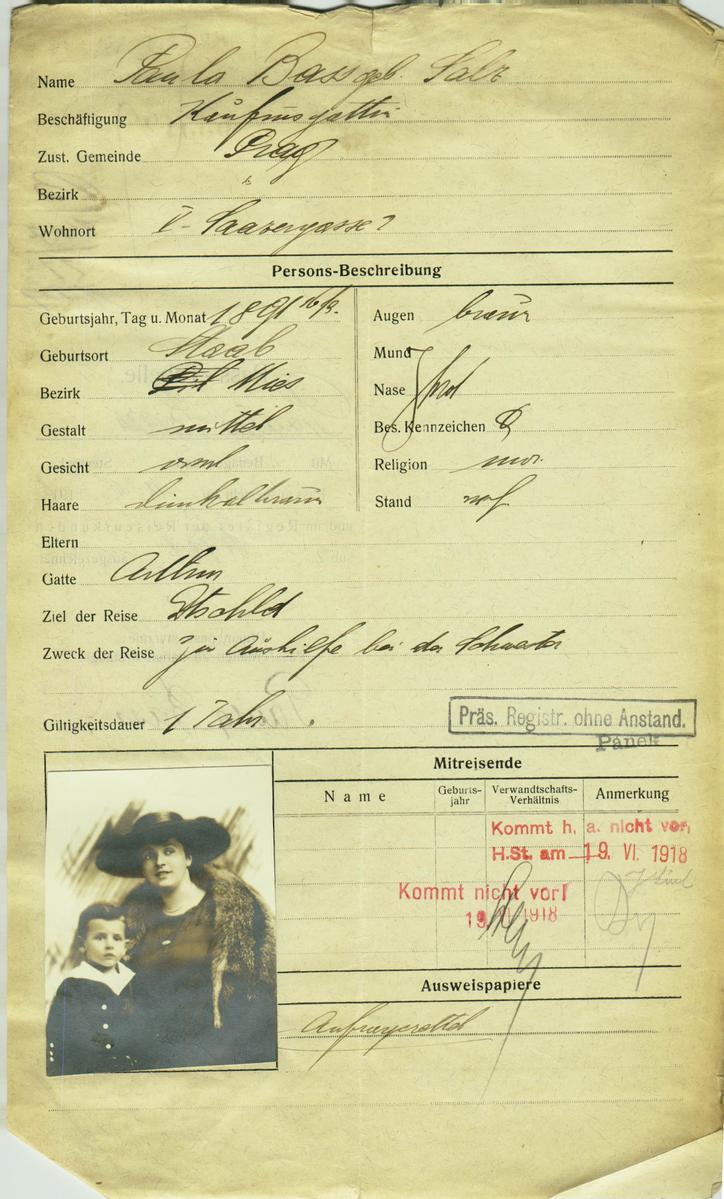 Name Paula Bass geb. Salz
Beschäftigung Kaufmsgattin
Zust. Gemeinde Prag
Bezirk
Wohnort V-Saazergasse 7
Persons-Beschreibung
Geburtsjahr, Tag u. Monat 1891 16/3.
Geburtsort Staab
Bezirk Mies
Gestalt mittel
Gesicht oval
Haare dunkelbraun
Augen braun
Mund
Nase prop
Bes. Kennzeichen
Religion mos.
Stand verh
Eltern
Gatte Arthur
Ziel der Reise Dtschld
Zweck der Reise zur Aushilfe bei der Schwester
Giltigkeitsdauer 1 Jahr.
Präs. Registr. ohne Anstand.
Panek
Mitreisende
Name
Geburts-
jahr
Verwandtschafts-
Verhältnis
Anmerkung
Kommt h. a. nicht vor,
H.St. am 19. VI. 1918
Kommt nicht vor!
19. VI 1918
Ausweispapiere